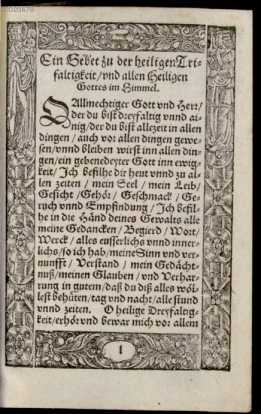 Ein Gebet zu der heiligen Tri-
faltigkeit/vnd allen Heiligen
Gottes im Himmel.
O Allmechtiger Gott vnd Herr/
der du bist dreyfaltig vnnd ai-
nig/der du bist allezeit in allen
dingen/auch vor allen dingen gewe-
sen/vnnd bleiben wirst inn allen din-
gen/ein gebenedeyter Gott inn ewig-
keit/Ich befilhe dir heut vnnd zu al-
len zeiten/mein Seel/mein Leib/
Gesicht/Gehör/Geschmack/Ge-
ruch vnnd Empfindung/Ich befil-
he in die Händ deines Gewalts alle
meine Gedancken/Begierd/Wort/
Werck/alles eusserlichs vnnd inner-
lichs/so ich hab/meine Sinn vnd ver-
nunfft/Verstand/mein Gedächt-
nuß/meinen Glauben/vnd Verhar-
rung in gutem/daß du diß alles wöl-
lest behüten/tag vnd nacht/alle stund
vnnd zeiten. O heilige Dreyfaltig-
keit/erhör vnd bewar mich vor allem